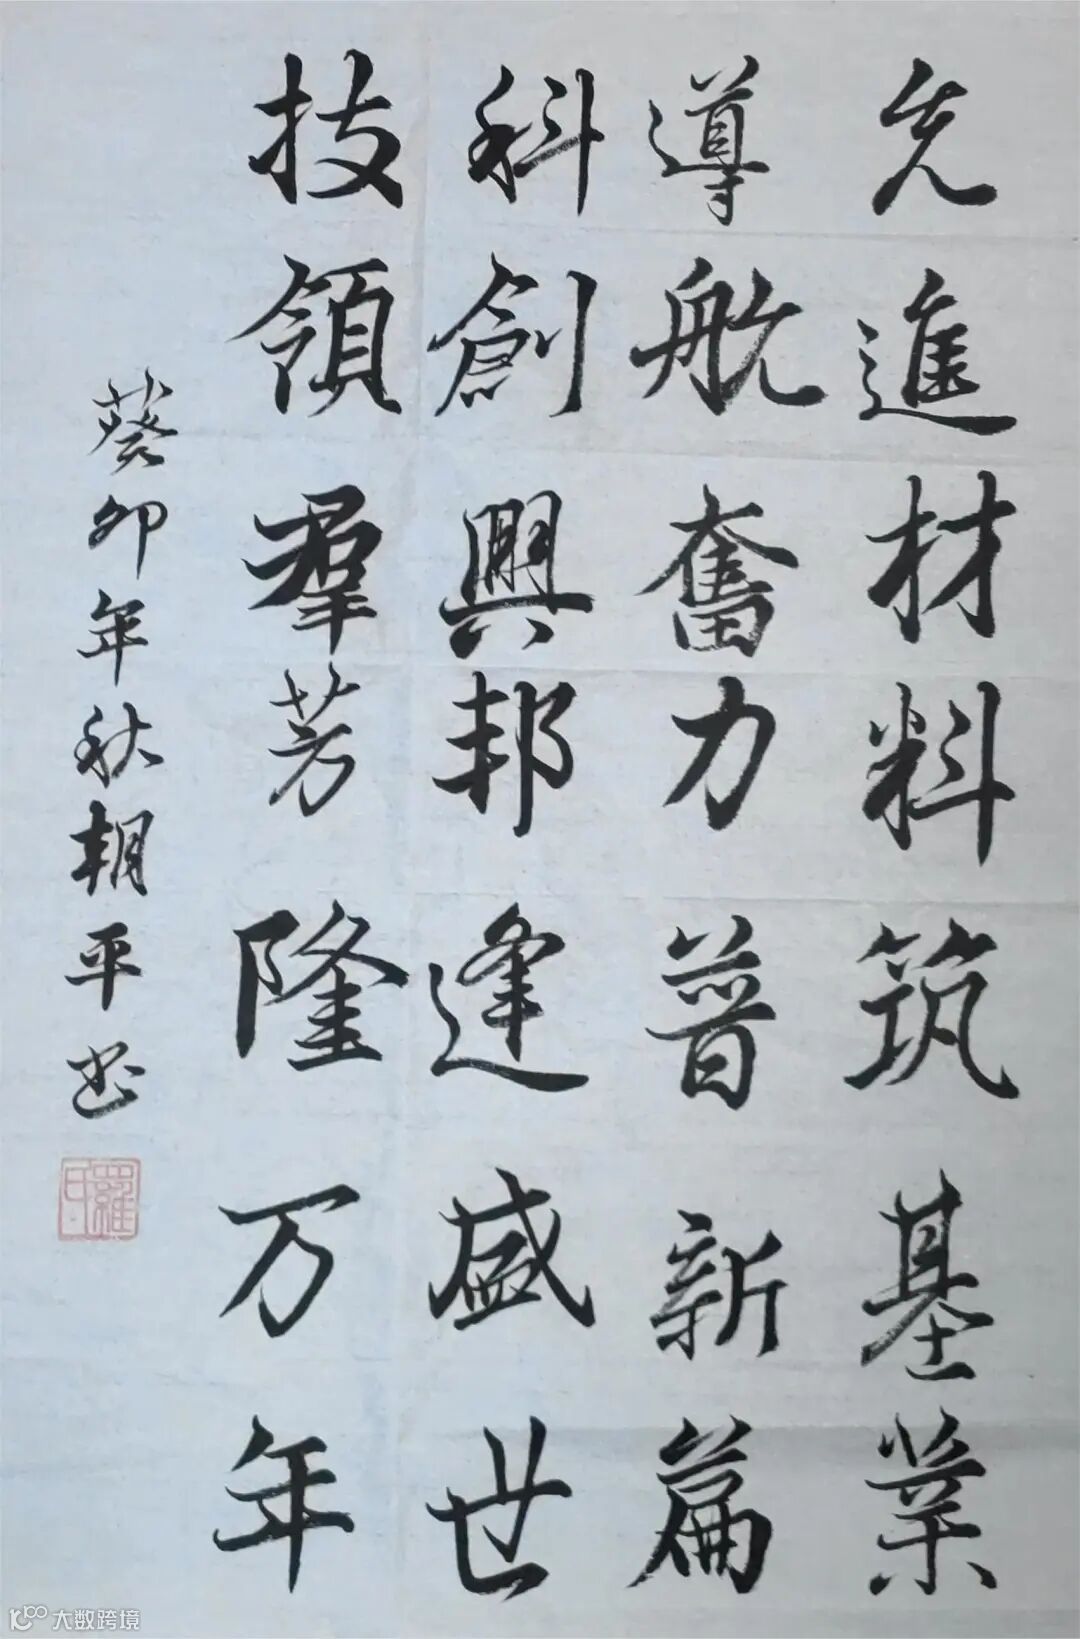 先進材料筑基業
導航奮力普新篇
科創興邦逢盛世
技領羣芳隆万年
癸卯年秋朝平书
羅
大数跨境